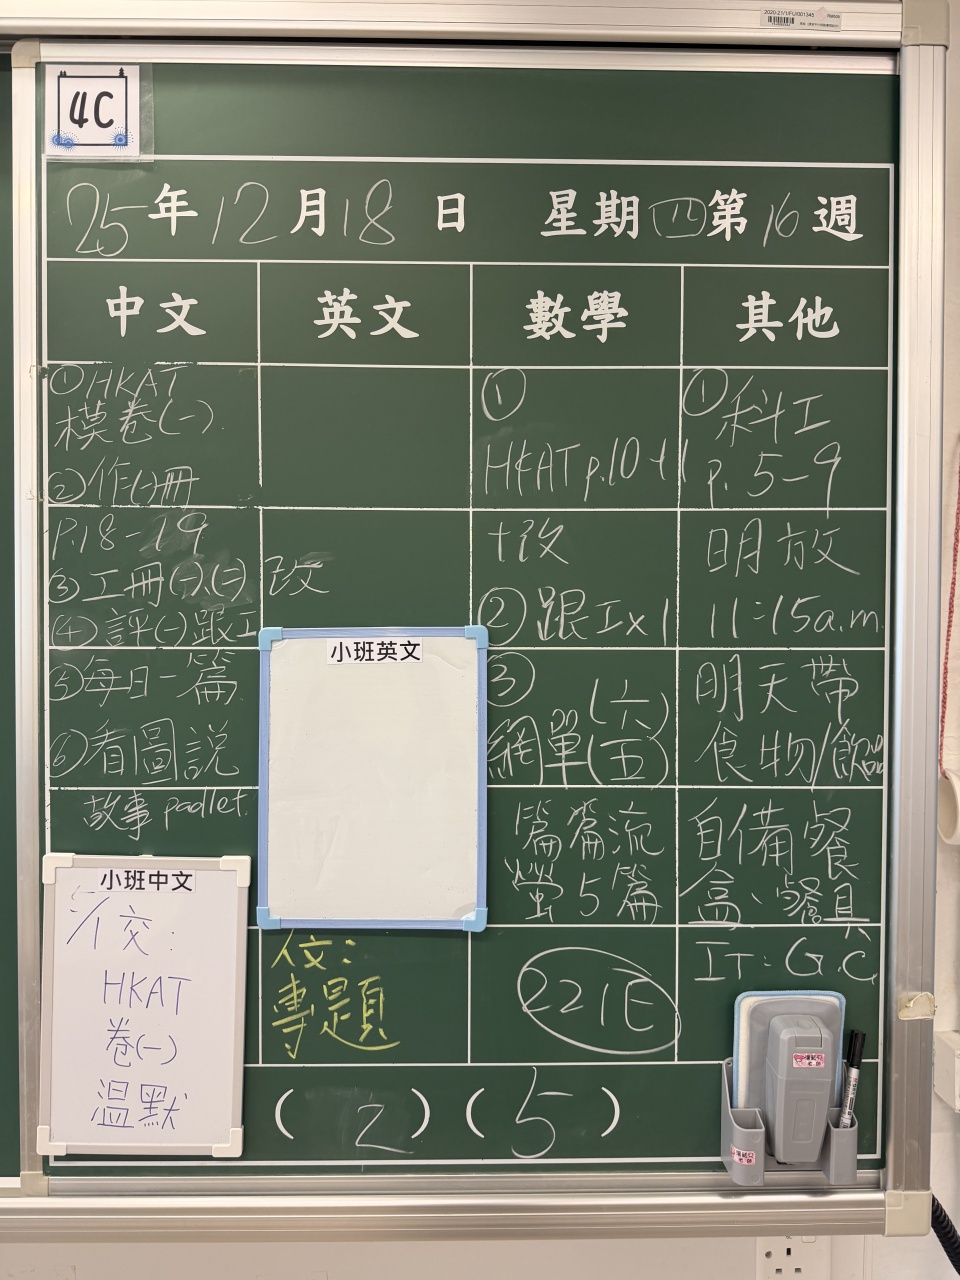 4C
25年12月18日 星期四第16週
中文
①HKAT
模卷(一)
②作(一)冊
P.18-19
③工冊(一)、(二)
④評(一)跟工
⑤每日一篇
⑥看圖説
故事 padlet.
小班中文
HKAT
卷(一)
溫默
英文
改
小班英文
專題
數學
①
HKAT p.10-11
+改
②跟工x1
③
網單(六)
(五)
篇篇流
螢 5篇
221E
其他
①科工
p. 5-9
明放
11:15a.m.
明天帶
食物/飲品
自備餐
盒、餐具
IT: G.C.
( 2 ) ( 5 )